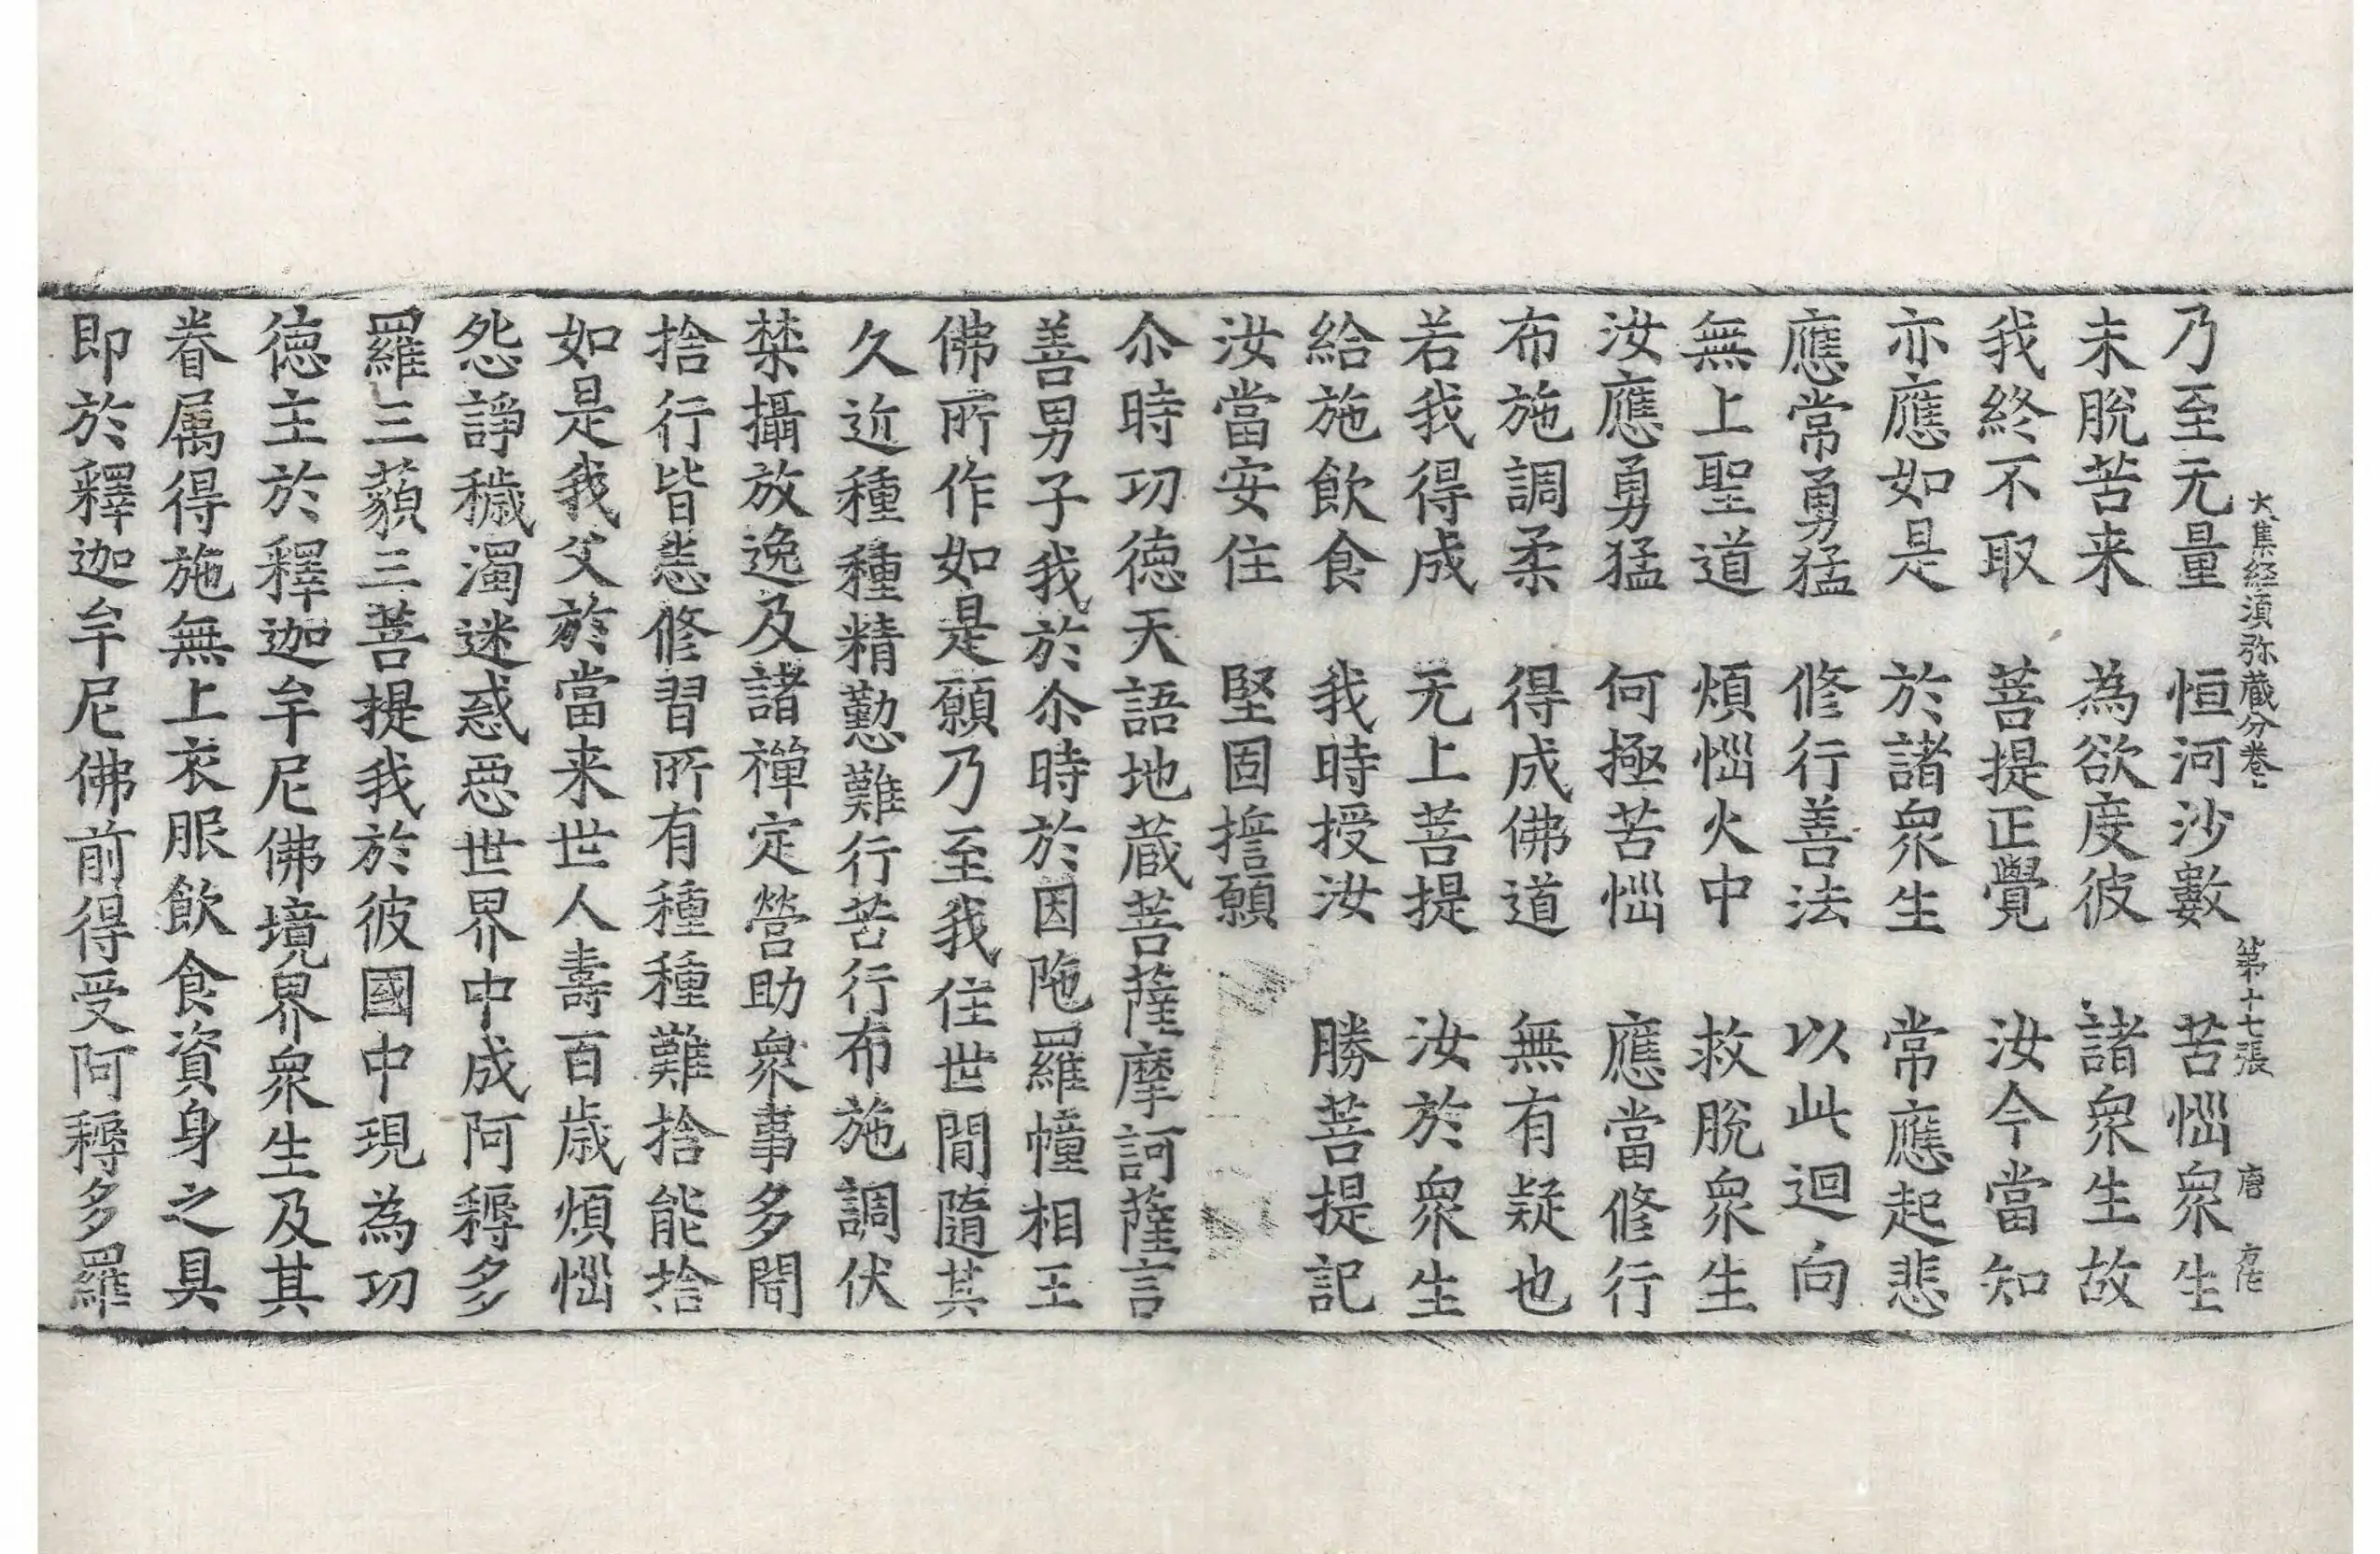 大集経須弥蔵分卷二 第十七張 唐
乃至无量 恒河沙數 苦惱衆生
未脫苦来 為欲度彼 諸衆生故
我終不取 菩提正覺 汝今當知
亦應如是 於諸衆生 常應起悲
應常勇猛 修行善法 以此迴向
無上聖道 煩惱火中 救脫衆生
汝應勇猛 何極苦惱 應當修行
布施調柔 得成佛道 無有疑也
若我得成 无上菩提 汝於衆生
給施飲食 我時授汝 勝菩提記
汝當安住 堅固擔願
尒時功德天語地蔵菩薩摩訶薩言
善男子我於尒時於因陁羅幢相王
佛所作如是願乃至我住世間隨其
久近種種精懃難行苦行布施調伏
禁攝放逸及諸禪定營助衆事多聞
捨行皆悉修習所有種種難捨能捨
如是我父於當来世人壽百歲煩惱
怨諍穢濁迷惑惡世界中成阿耨多
羅三藐三菩提我於彼國中現為功
德主於釋迦牟尼佛境界衆生及其
眷属得施無上衣服飲食資身之具
即於釋迦牟尼佛前得受阿耨多羅